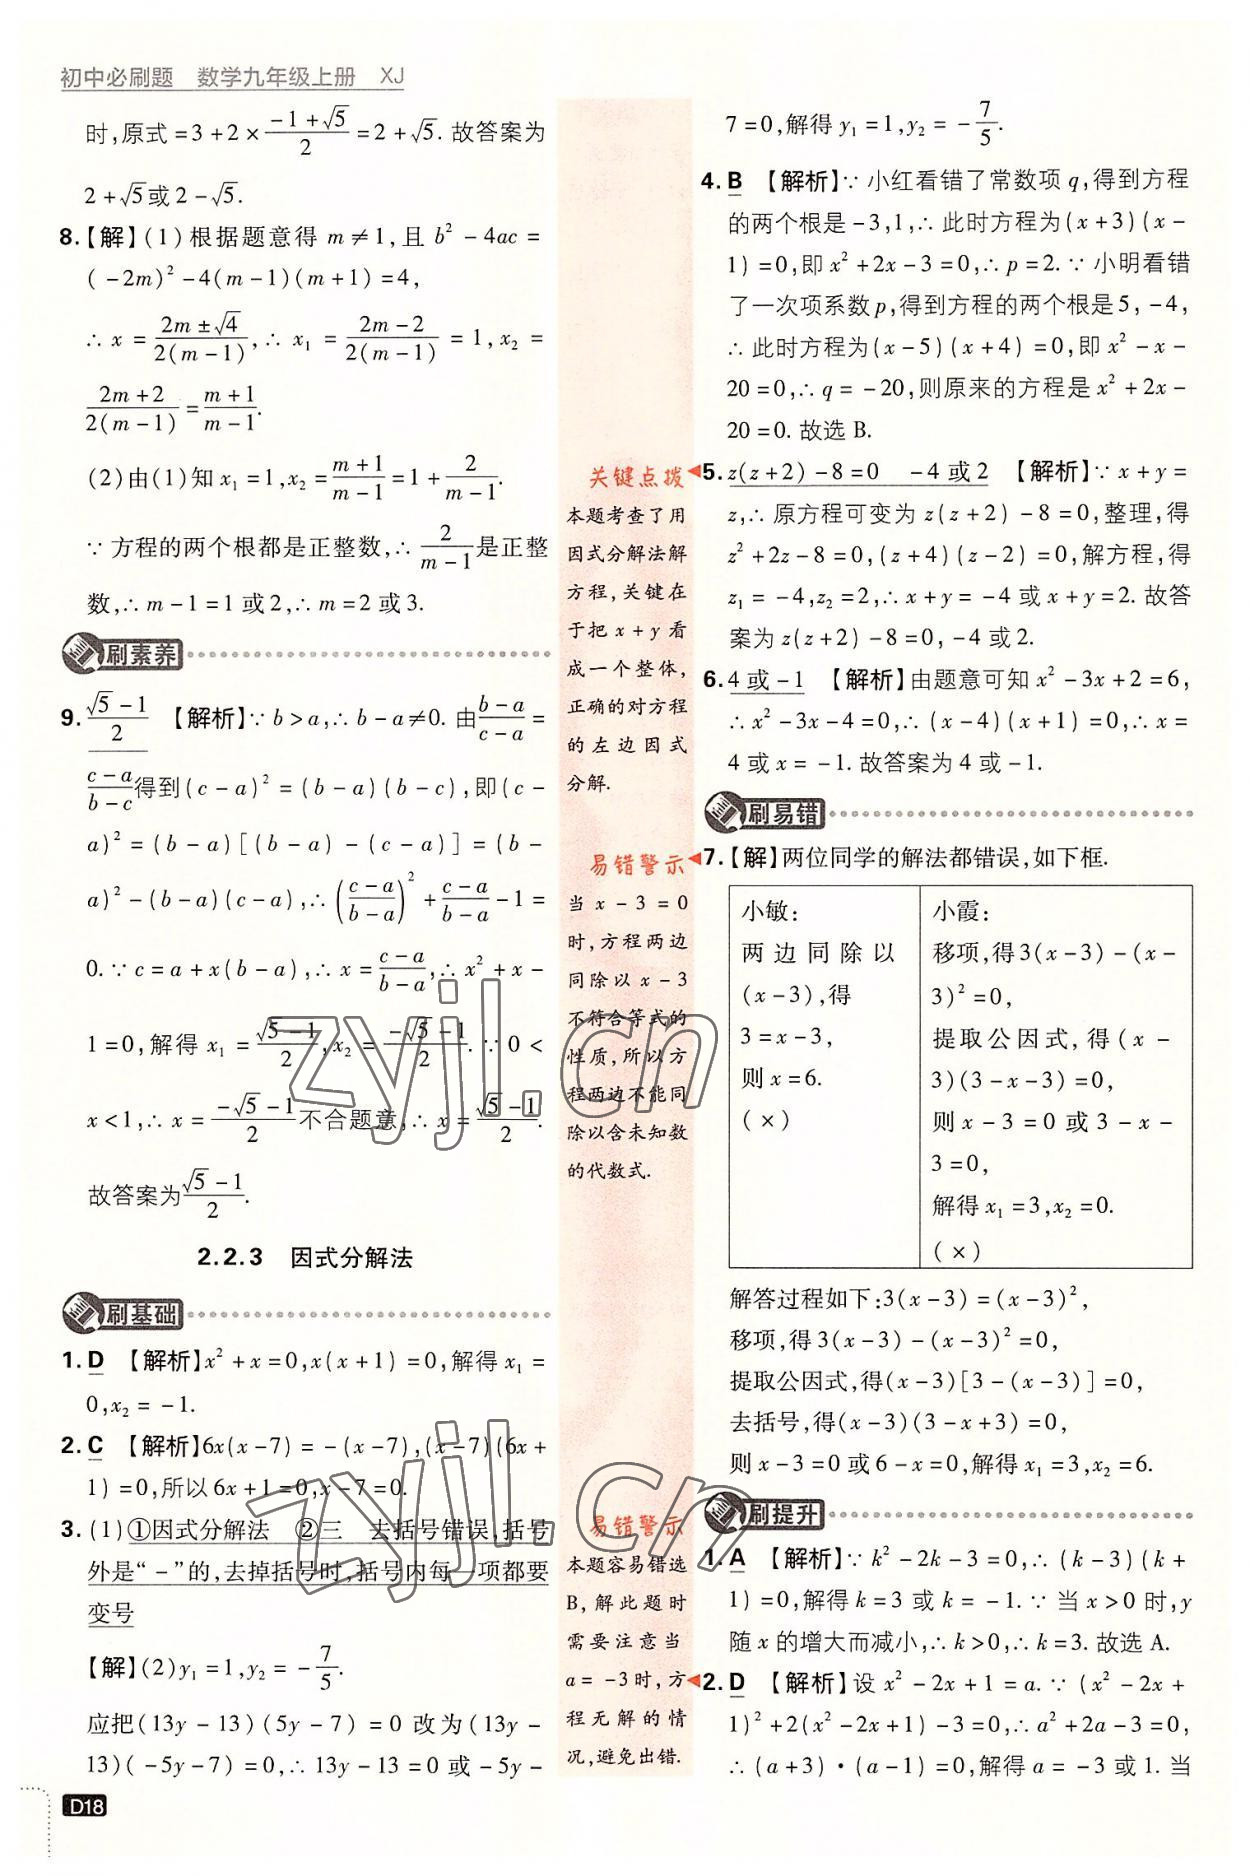 初中必刷题 数学九年级上册 XJ
时,原式=3+2×(-1+√5)/2=2+√5.故答案为
2+√5或2-√5.
8.【解】(1)根据题意得 m≠1,且 b²-4ac=
(-2m)²-4(m-1)(m+1)=4,
∴x=(2m±√4)/2(m-1),∴x₁=(2m-2)/2(m-1)=1,x₂=
(2m+2)/2(m-1)=(m+1)/(m-1).
(2)由(1)知 x₁=1,x₂=(m+1)/(m-1)=1+2/(m-1).
∵方程的两个根都是正整数,∴2/(m-1)是正整
数,∴m-1=1或2,∴m=2或3.
刷素养
9.(√5-1)/2 【解析】∵b>a,∴b-a≠0.由(b-a)/(c-a)=
(c-a)/(b-c)得到(c-a)²=(b-a)(b-c),即(c-
a)²=(b-a)[(b-a)-(c-a)]=(b-
a)²-(b-a)(c-a),∴((c-a)/(b-a))²+(c-a)/(b-a)-1=
0.∵c=a+x(b-a),∴x=(c-a)/(b-a),∴x²+x-
1=0,解得 x₁=(√5-1)/2,x₂=(-√5-1)/2.∵0<
x<1,∴x=(-√5-1)/2不合题意,∴x=(√5-1)/2.
故答案为(√5-1)/2.
2.2.3 因式分解法
刷基础
1.D 【解析】x²+x=0,x(x+1)=0,解得 x₁=
0,x₂=-1.
2.C 【解析】6x(x-7)=-(x-7),(x-7)(6x+
1)=0,所以6x+1=0,x-7=0.
3.(1)①因式分解法 ②三 去括号错误,括号
外是“-”的,去掉括号时,括号内每一项都要
变号
【解】(2)y₁=1,y₂=-7/5.
应把(13y-13)(5y-7)=0 改为(13y-
13)(-5y-7)=0,∴13y-13=0或-5y-
D18
关键点拨
本题考查了用
因式分解法解
方程,关键在
于把 x+y 看
成一个整体,
正确的对方程
的左边因式
分解.
易错警示
当 x-3=0
时,方程两边
同除以 x-3
不符合等式的
性质,所以方
程两边不能同
除以含未知数
的代数式.
易错警示
本题容易错选
B,解此题时
需要注意当
a=-3时,方
程无解的情
况,避免出错.
7=0,解得y₁=1,y₂=-7/5.
4.B 【解析】∵小红看错了常数项 q,得到方程
的两个根是-3,1,∴此时方程为(x+3)(x-
1)=0,即 x²+2x-3=0,∴p=2.∵小明看错
了一次项系数p,得到方程的两个根是5,-4,
∴此时方程为(x-5)(x+4)=0,即 x²-x-
20=0,∴q=-20,则原来的方程是 x²+2x-
20=0.故选 B.
5.z(z+2)-8=0 -4或2 【解析】∵x+y=
z,∴原方程可变为 z(z+2)-8=0,整理,得
z²+2z-8=0,(z+4)(z-2)=0,解方程,得
z₁=-4,z₂=2,∴x+y=-4或x+y=2.故答
案为z(z+2)-8=0,-4或2.
6.4或-1 【解析】由题意可知 x²-3x+2=6,
∴x²-3x-4=0,∴(x-4)(x+1)=0,∴x=
4或x=-1.故答案为4或-1.
刷易错
7.【解】两位同学的解法都错误,如下框.
小敏:
两边同除以
(x-3),得
3=x-3,
则 x=6.
(×)
小霞:
移项,得3(x-3)-(x-
3)²=0,
提取公因式,得(x-
3)(3-x-3)=0,
则 x-3=0或3-x-
3=0,
解得 x₁=3,x₂=0.
(×)
解答过程如下:3(x-3)=(x-3)²,
移项,得3(x-3)-(x-3)²=0,
提取公因式,得(x-3)[3-(x-3)]=0,
去括号,得(x-3)(3-x+3)=0,
则 x-3=0或6-x=0,解得x₁=3,x₂=6.
刷提升
1.A 【解析】∵k²-2k-3=0,∴(k-3)(k+
1)=0,解得k=3或k=-1.∵当x>0时,y
随x的增大而减小,∴k>0,∴k=3.故选A.
2.D 【解析】设 x²-2x+1=a.∵(x²-2x+
1)²+2(x²-2x+1)-3=0,∴a²+2a-3=0,
∴(a+3)·(a-1)=0,解得 a=-3或1.当
zyjl.cn
zyjl.cn